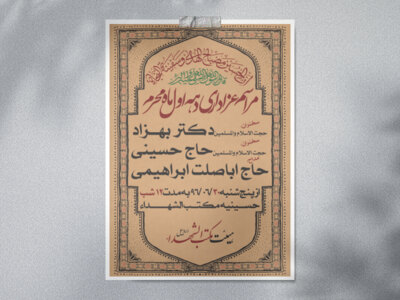 ان الحسین مصباح الهدی و سفینة النجاة
مراسم عزاداری دهه اول ماه محرم
سخنران
حجت الاسلام والمسلمین دکتر بهزاد
سخنران
حجت الاسلام والمسلمین حاج حسینی
مداح
حاج اباصلت ابراهیمی
از پنج شنبه ۹۶/۰۶/۳۰ به مدت ۱۲ شب
حسینیه مکتب الشهداء
هیئت مکتب الشهداء